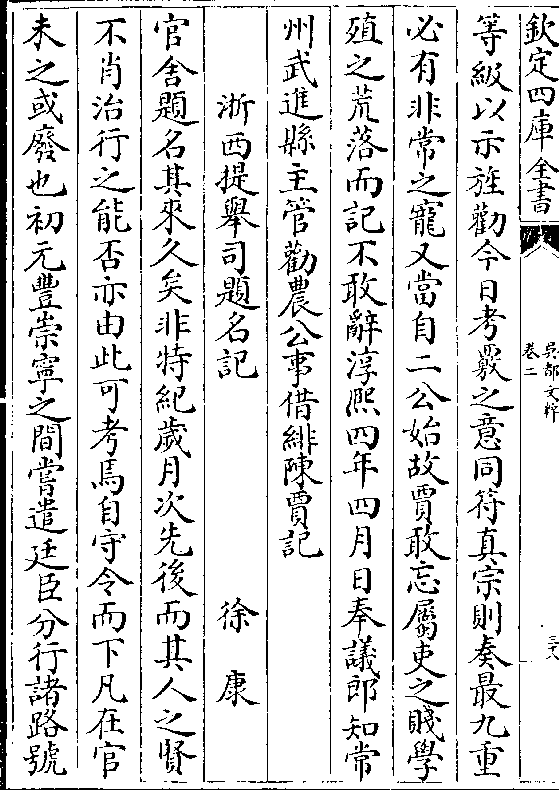 欽定四庫全書
吳都文粹
卷二
三八
等級以示旌勸今日考覈之意同符真宗則奏最九重
必有非常之寵又當自二公始故賈敢忘屬吏之賤學
殖之荒落而記不敢辭淳熙四年四月日奉議郎知常
州武進縣主管勸農公事借緋陳賈記
浙西提舉司題名記 徐康
官舍題名其來久矣非特紀歲月次先後而其人之賢
不肖治行之能否亦由此可考焉自守令而下凡在官
未之或廢也初元豐崇寧之間嘗遣廷臣分行諸路號